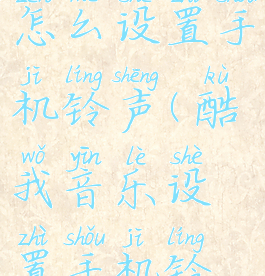 怎么设置手
jī líng shēng kù
机铃声(酷
wǒ yīn lè shè
我音乐设
zhì shǒu jī líng
置手机铃